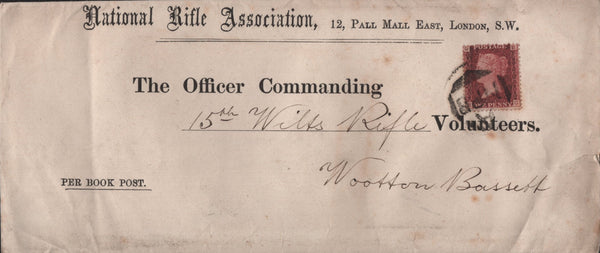 National Rifle Association, 12, PALL MALL EAST, LONDON, S.W.
POSTAGE
The Officer Commanding
15th Wilts Rifle Volunteers.
Wootton Bassett
PER BOOK POST.